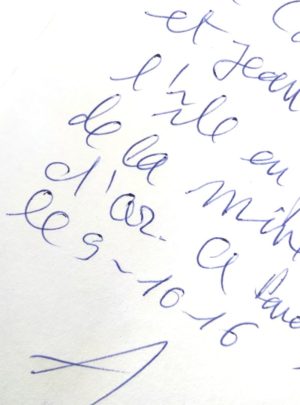 et Jean
l'île en
de la
d'or. A
le 9-10-16